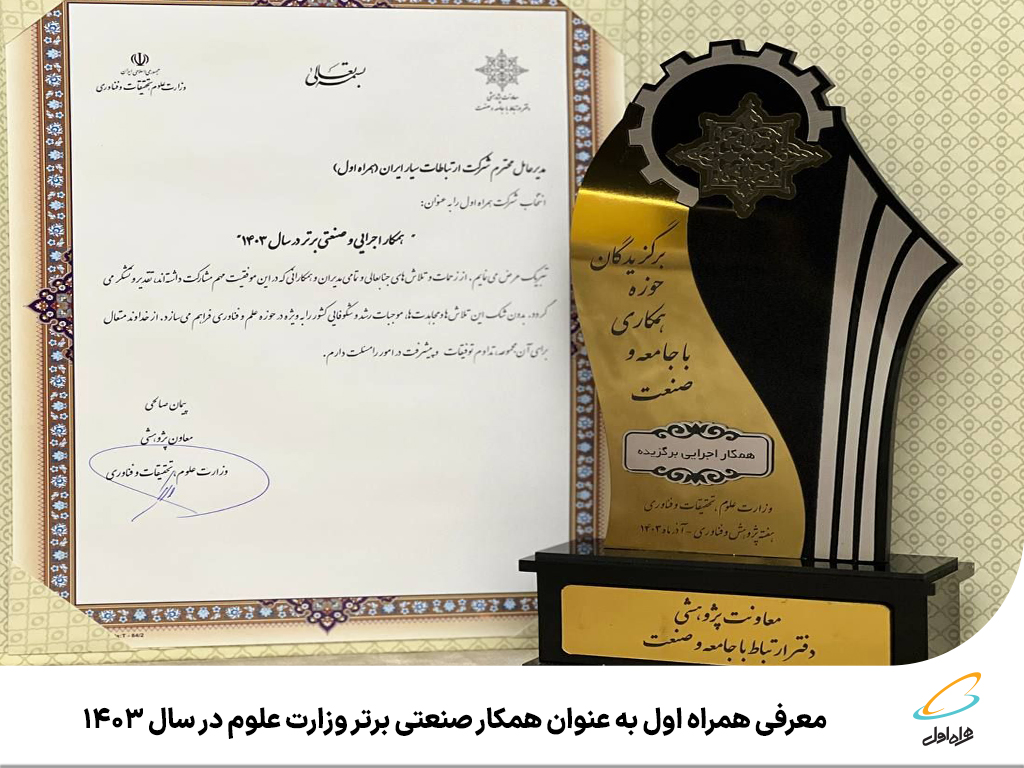 بسمه تعالی
جمهوری اسلامی ایران
وزارت علوم، تحقیقات و فناوری
معاونت پژوهشی
دفتر ارتباط با جامعه و صنعت
مدیرعامل محترم شرکت ارتباطات سیار ایران (همراه اول)
انتخاب شرکت همراه اول را به عنوان:
" همکار اجرایی و صنعتی برتر در سال ۱۴۰۳"
تبریک عرض می‌نمایم، از زحمات و تلاش‌های جنابعالی و تمامی مدیران و همکارانی که در این موفقیت مهم مشارکت داشته‌اند، تقدیر و تشکر می
گردد. بدون شک این تلاش‌ها و مجاهدت‌ها، موجبات رشد و شکوفایی کشور را به ویژه در حوزه علم و فناوری فراهم می‌سازد. از خداوند متعال
برای آن مجموعه، تداوم توفیقات و پیشرفت در امور را مسئلت دارم.
پیمان صالحی
معاون پژوهشی
وزارت علوم، تحقیقات و فناوری
برگزیدگان
حوزه
همکاری
با جامعه و
صنعت
همکار اجرایی برگزیده
وزارت علوم، تحقیقات و فناوری
هفته پژوهش و فناوری - آذر ماه ۱۴۰۳
معاونت پژوهشی
دفتر ارتباط با جامعه و صنعت
معرفی همراه اول به عنوان همکار صنعتی برتر وزارت علوم در سال ۱۴۰۳
همراه اول